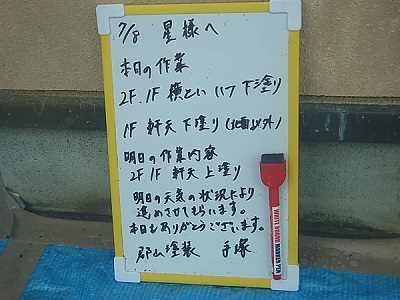 7/8 星様へ
本日の作業
2F.1F 横とい ハフ 下塗り
1F 軒天 下塗り(北面以外)
明日の作業内容
2F 1F 軒天 上塗り
明日の天気の状況により
進めさせてもらいます。
本日もありがとうございます。
郡山塗装 手塚
WHITE BOARD MARKER PEN